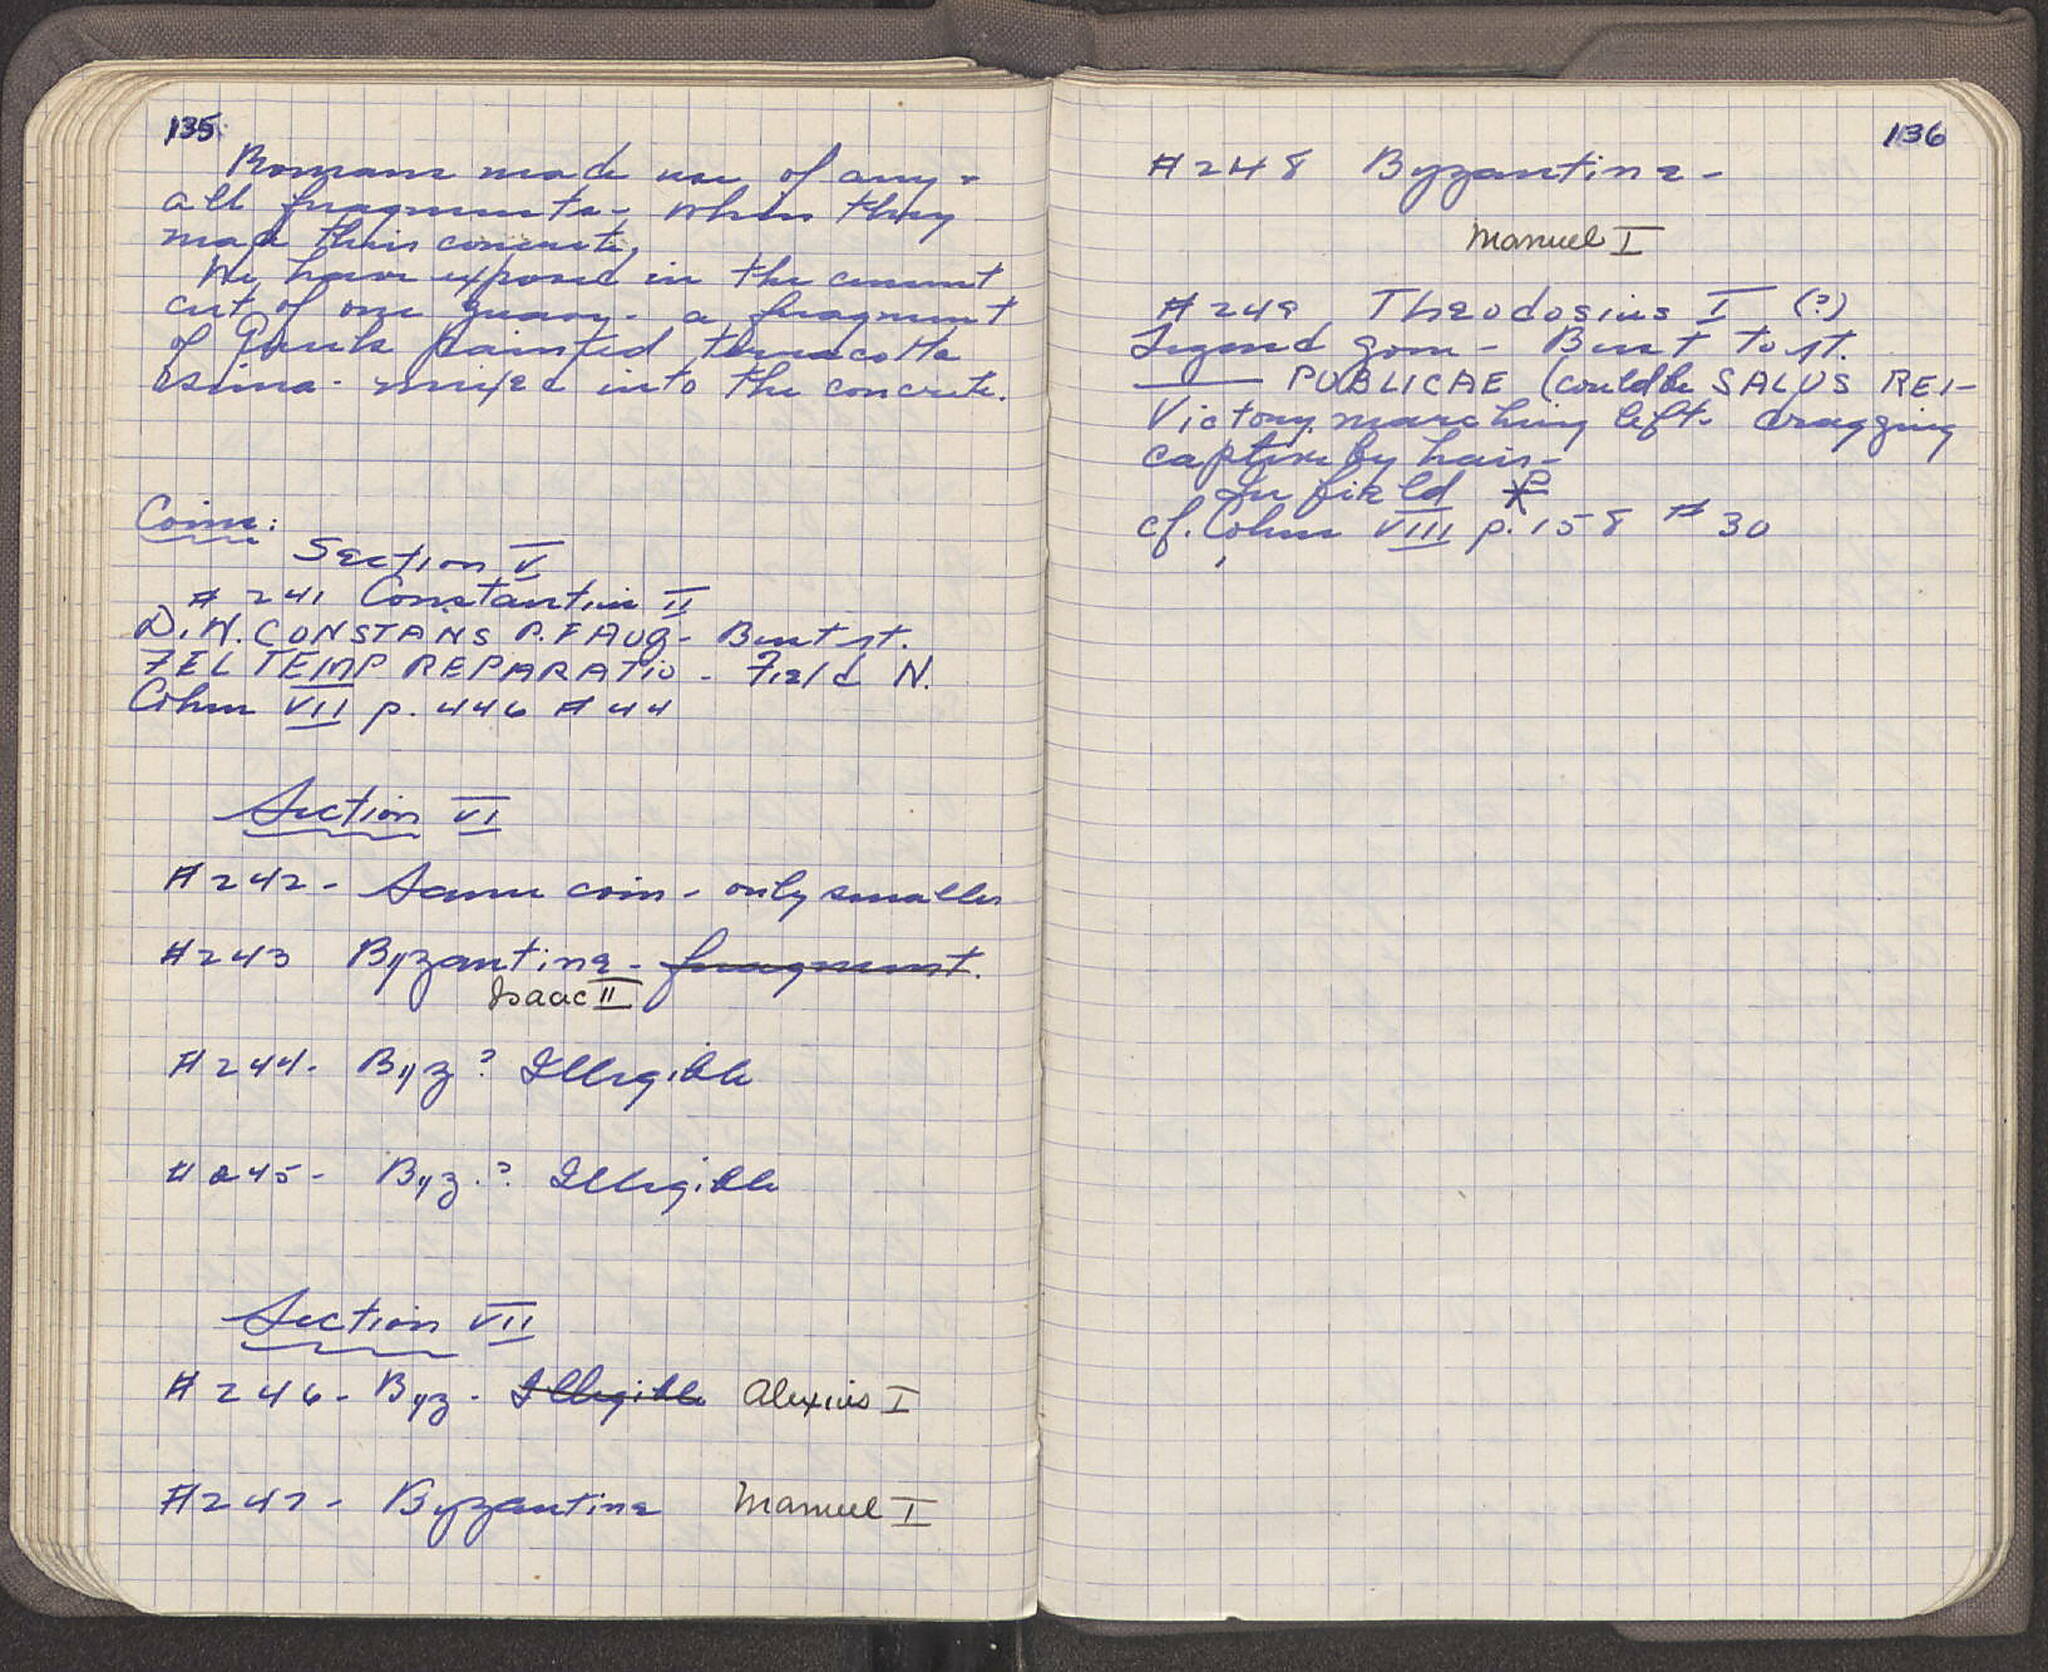 135
Romans made use of any +
all fragments - when they
made their concrete.
We have exposed in the cement
cut of one quarry - a fragment
of Greek painted terracotta
sima - mixed into the concrete.
Coins:
Section V
# 241 Constantin II
D.N. CONSTANS P.F AUG - Bust rt.
FEL TEMP REPARATIO - Field N.
Cohen VII p. 446 # 44
Section VI
# 242 - Same coin - only smaller
# 243 Byzantine - fragment.
Isaac II
# 244 - Byz ? Illegible
# 245 - Byz.? Illegible
Section VII
# 246 - Byz - Illegible Alexius I
# 247 - Byzantine Manuel I
136
# 248 Byzantine -
Manuel I
# 249 Theodosius I (?)
Legend gone - Bust to rt.
—— PUBLICAE (could be SALUS REI -
Victory marching left - dragging
captive by hair -
In field ⳨
cf. Cohen VIII p. 158 # 30